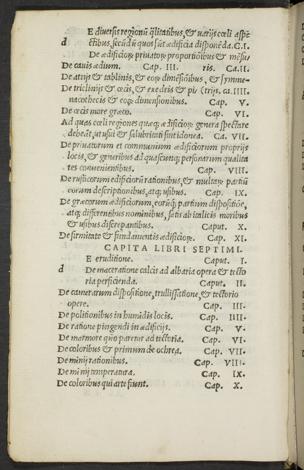 E diuersis regionũ q̃litatibus, & uarijs cœli aspe
d ctibus, secũdũ quos sũt ædificia disponẽda. C. I.
De ædificiorꝝ priuatorꝝ proportiõibus & mẽsu
De cauis ædium. Cap. III. ris. Ca. II.
De atrijs & tablinis, & eorꝝ dimẽsiõibus, & symme-
De triclinijs & œcis, & exedris et pi (trijs. ca. IIII.
nacothecis & eorꝝ dimensionibus. Cap. V.
De œcis more græco. Cap. VI.
Ad quas cœli regiones quæq; ædificiorꝝ genera spectare
debeãt, ut usui & salubritati sint idonea. Ca. VII.
De priuatorum et communium ædificiorum proprijs
locis, & generibus ad quascunq; personarum qualita
tes conuenientibus. Cap. VIII.
De rusticorum ædificiorũ rationibus, & multarꝝ partiũ
eorum descriptionibus, atq; usibus. Cap. IX.
De græcorum ædificiorum, eorũq; partium dispositiõe,
atq; differentibus nominibus, satis ab italicis moribus
& usibus discrepantibus. Caput. X.
De firmitate & fundamentis ædificiorꝝ. Cap. XI.
CAPITA LIBRI SEPTIMI.
E eruditione. Caput. I.
d De maceratione calcis ad albaria opera & tecto
ria perficienda. Caput. II.
De camerarum dispositione, trullissatione, & tectorio
opere. Cap. III.
De politionibus in humidis locis. Cap. IIII.
De ratione pingendi in ædificijs. Cap. V.
De marmore quo paretur ad tectoria. Cap. VI.
De coloribus & primum de ochrea. Cap. VII.
De minij rationibus. Cap. VIII.
De minij temperatura. Cap. IX.
De coloribus qui arte fiunt. Cap. X.